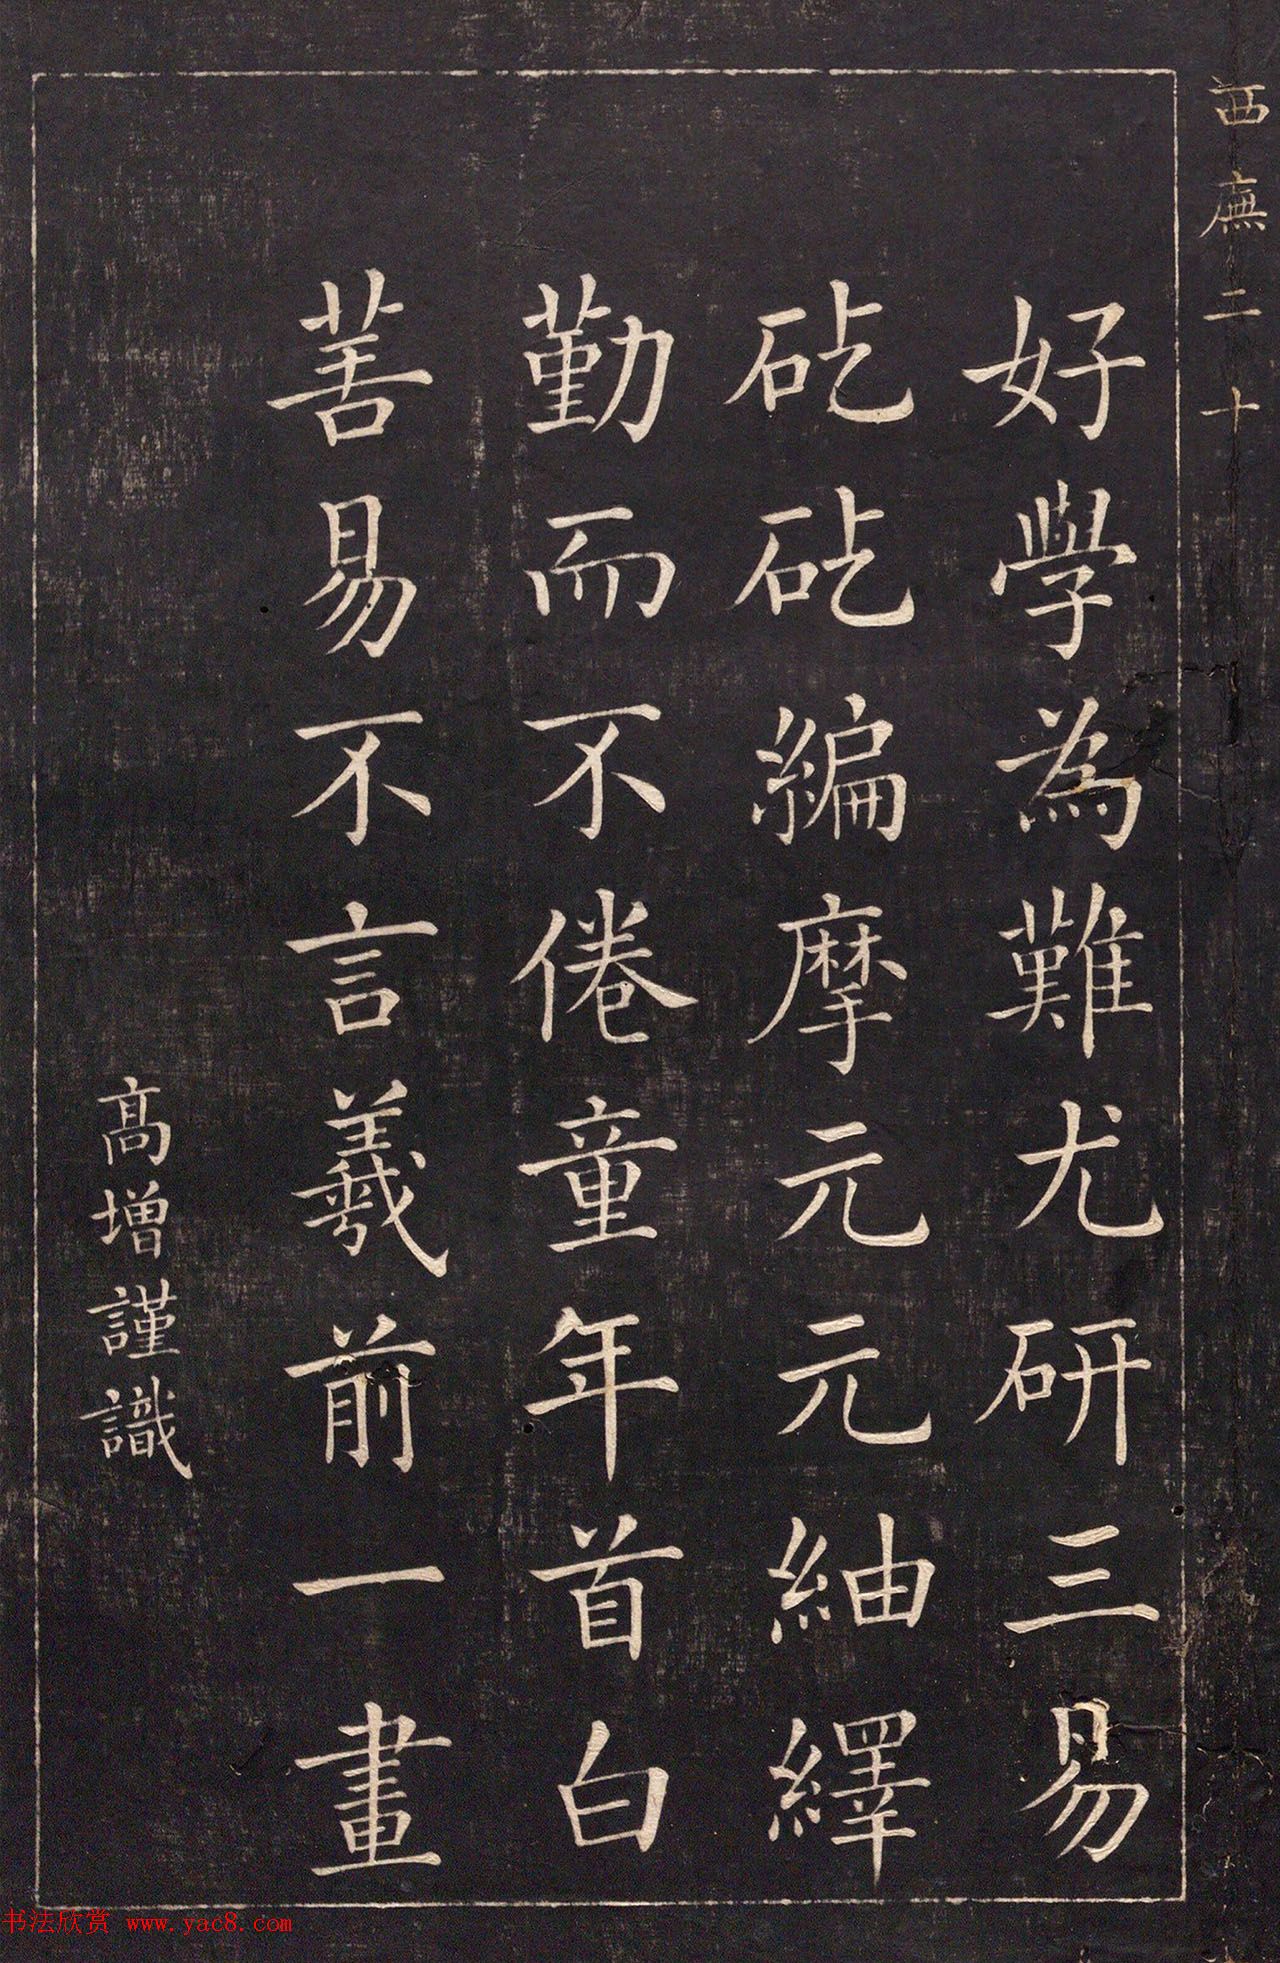 西廡二十
好學為難尤研三易
矻矻編摩元元紬繹
勤而不倦童年首白
善易不言羲前一畫
高增謹識
书法欣赏 www.yac8.com